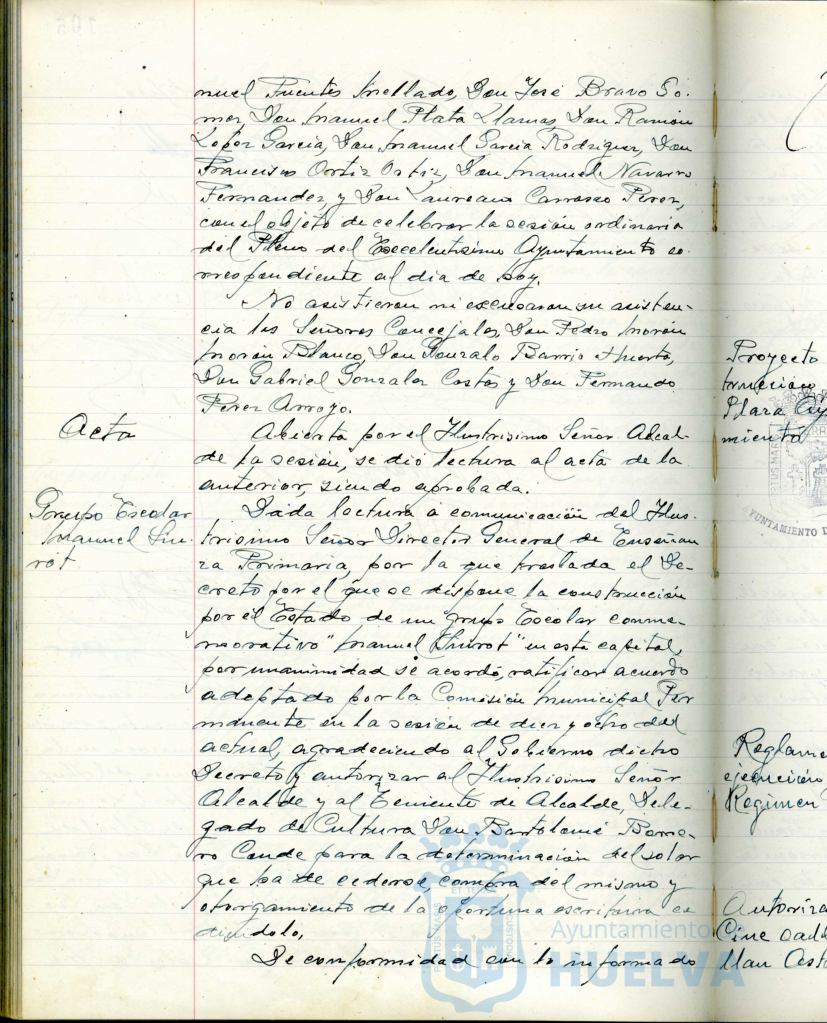 nuel Fuentes Mellado, Don José Bravo Gó-
mez, Don Manuel Plata Llamas, Don Ramón
López García, Don Manuel García Rodríguez, Don
Francisco Ortiz Ortiz, Don Manuel Navarro
Fernandez, y Don Laureano Carrasco Perez,
con el objeto de celebrar la sesión ordinaria
del Pleno del Excelentisimo Ayuntamiento co-
rrespondiente al dia de hoy.
No asistieron ni excusaron su asisten-
cia los Señores Concejales, Don Pedro Morón
Morón Blanco, Don Gonzalo Barrio Huerta,
Don Gabriel Gonzalez Costas y Don Fernando
Perez Arroyo.
Acta
Abierta por el Ilustrisimo Señor Alcal-
de la sesión, se dió lectura al acta de la
anterior, siendo aprobada.
Grupo Escolar
Manuel Siu-
rot
Dada lectura a comunicación del Ilus-
trisimo Señor Director General de Enseñan
za Primaria, por la que traslada el De-
creto por el que se dispone la construcción
por el Estado de un grupo Escolar conme-
morativo "Manuel Siurot" en esta capital,
por unanimidad se acordó, ratificar acuerdo
adoptado por la Comisión Municipal Per
manente en la sesión de diez y ocho del
actual, agradeciendo al Gobierno dicho
Decreto y autorizar al Ilustrisimo Señor
Alcalde y al Teniente de Alcalde, Dele-
gado de Cultura Don Bartolomé Rome-
ro Conde para la determinación del solar
que ha de cederse, compra del mismo y
otorgamiento de la oportuna escritura ce
diendolo,
De conformidad con lo informado
Proyecto
trucción
Plaza Ay
miento
Reglame
ejecución
Regimen
Autoriza
Cine call
llan
UNTAMIENTO D
Ayuntamiento
HUELVA